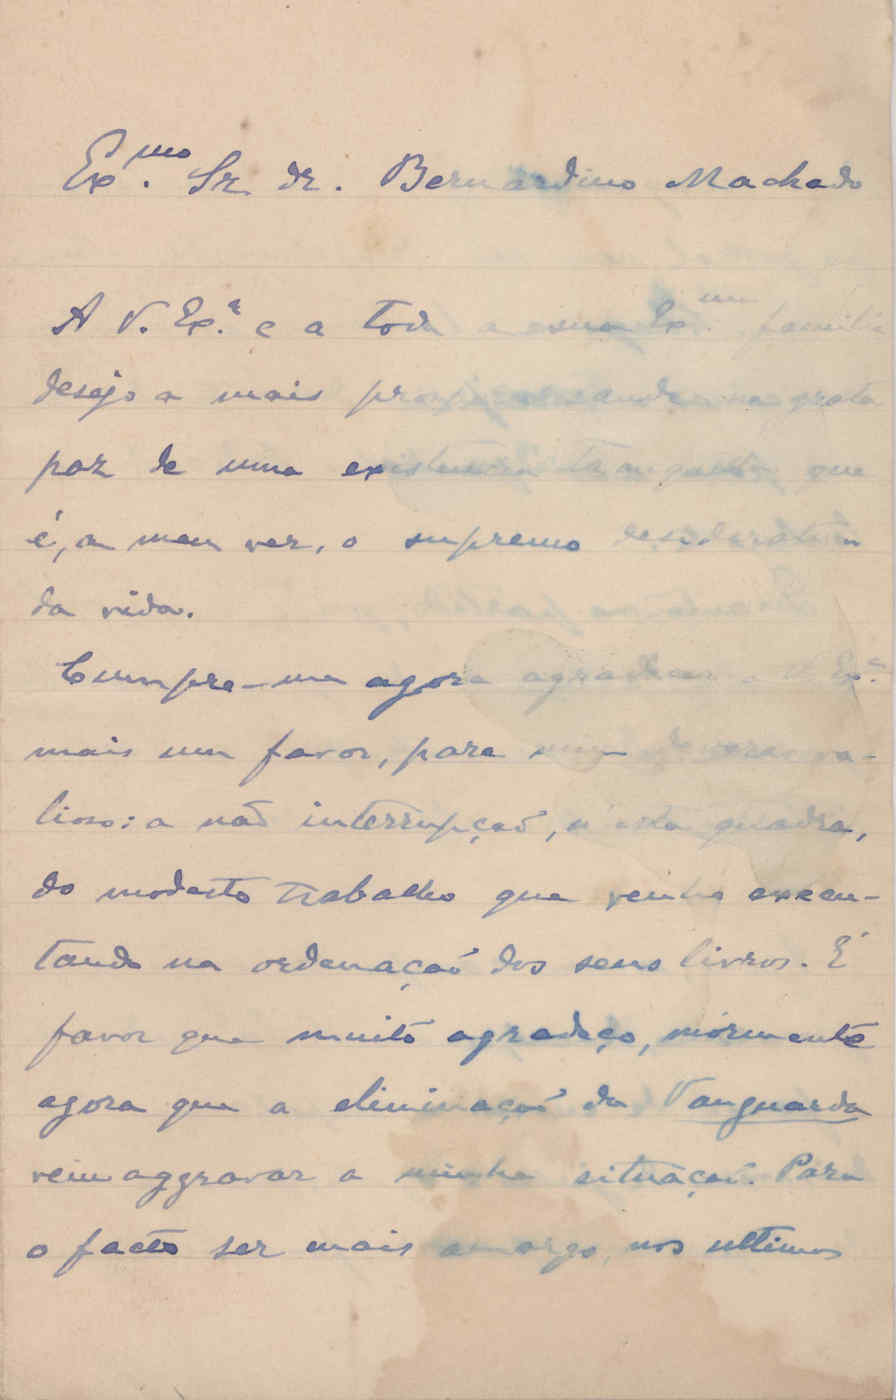 Ex.mo Sr. dr. Bernardino Machado
A V. Ex.ª e a toda a sua Ex.ma familia
desejo a mais prospera saude na grata
paz de uma existencia tranquilla, que
é, a meu ver, o supremo desideratum
da vida.
Cumpre-me agora agradecer a V. Ex.ª
mais um favor, para mim deveras va-
lioso: a não interrupção, n'esta quadra,
do modesto trabalho que venho execu-
tando na ordenação dos seus livros. É
favor que muito agradeço, mórmente
agora que a eliminação da Vanguarda
veiu aggravar a minha situação. Para
o facto ser mais amargo, nos ultimos